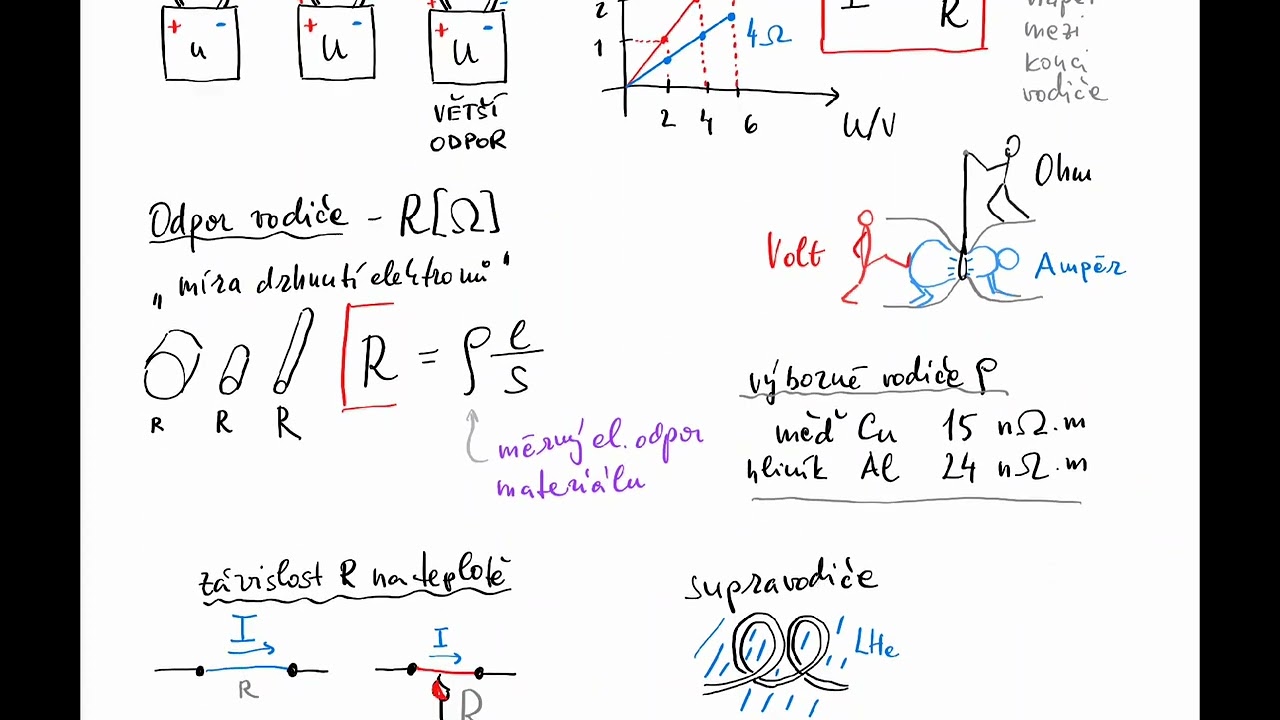 + - + - + -
u U U
VĚTŠÍ
ODPOR
2
1
4Ω
2 4 6 U/V
R
mezi
konci
vodiče
Ohm
Volt
Ampér
Odpor vodiče - R[Ω]
„míra drhnutí elektronů"
R = ρ l
S
R R R
měrný el. odpor
materiálu
výborné vodiče ρ
měď Cu 15 nΩ.m
hliník Al 24 nΩ.m
závislost R na teplotě
I I
R R
supravodiče
LHe